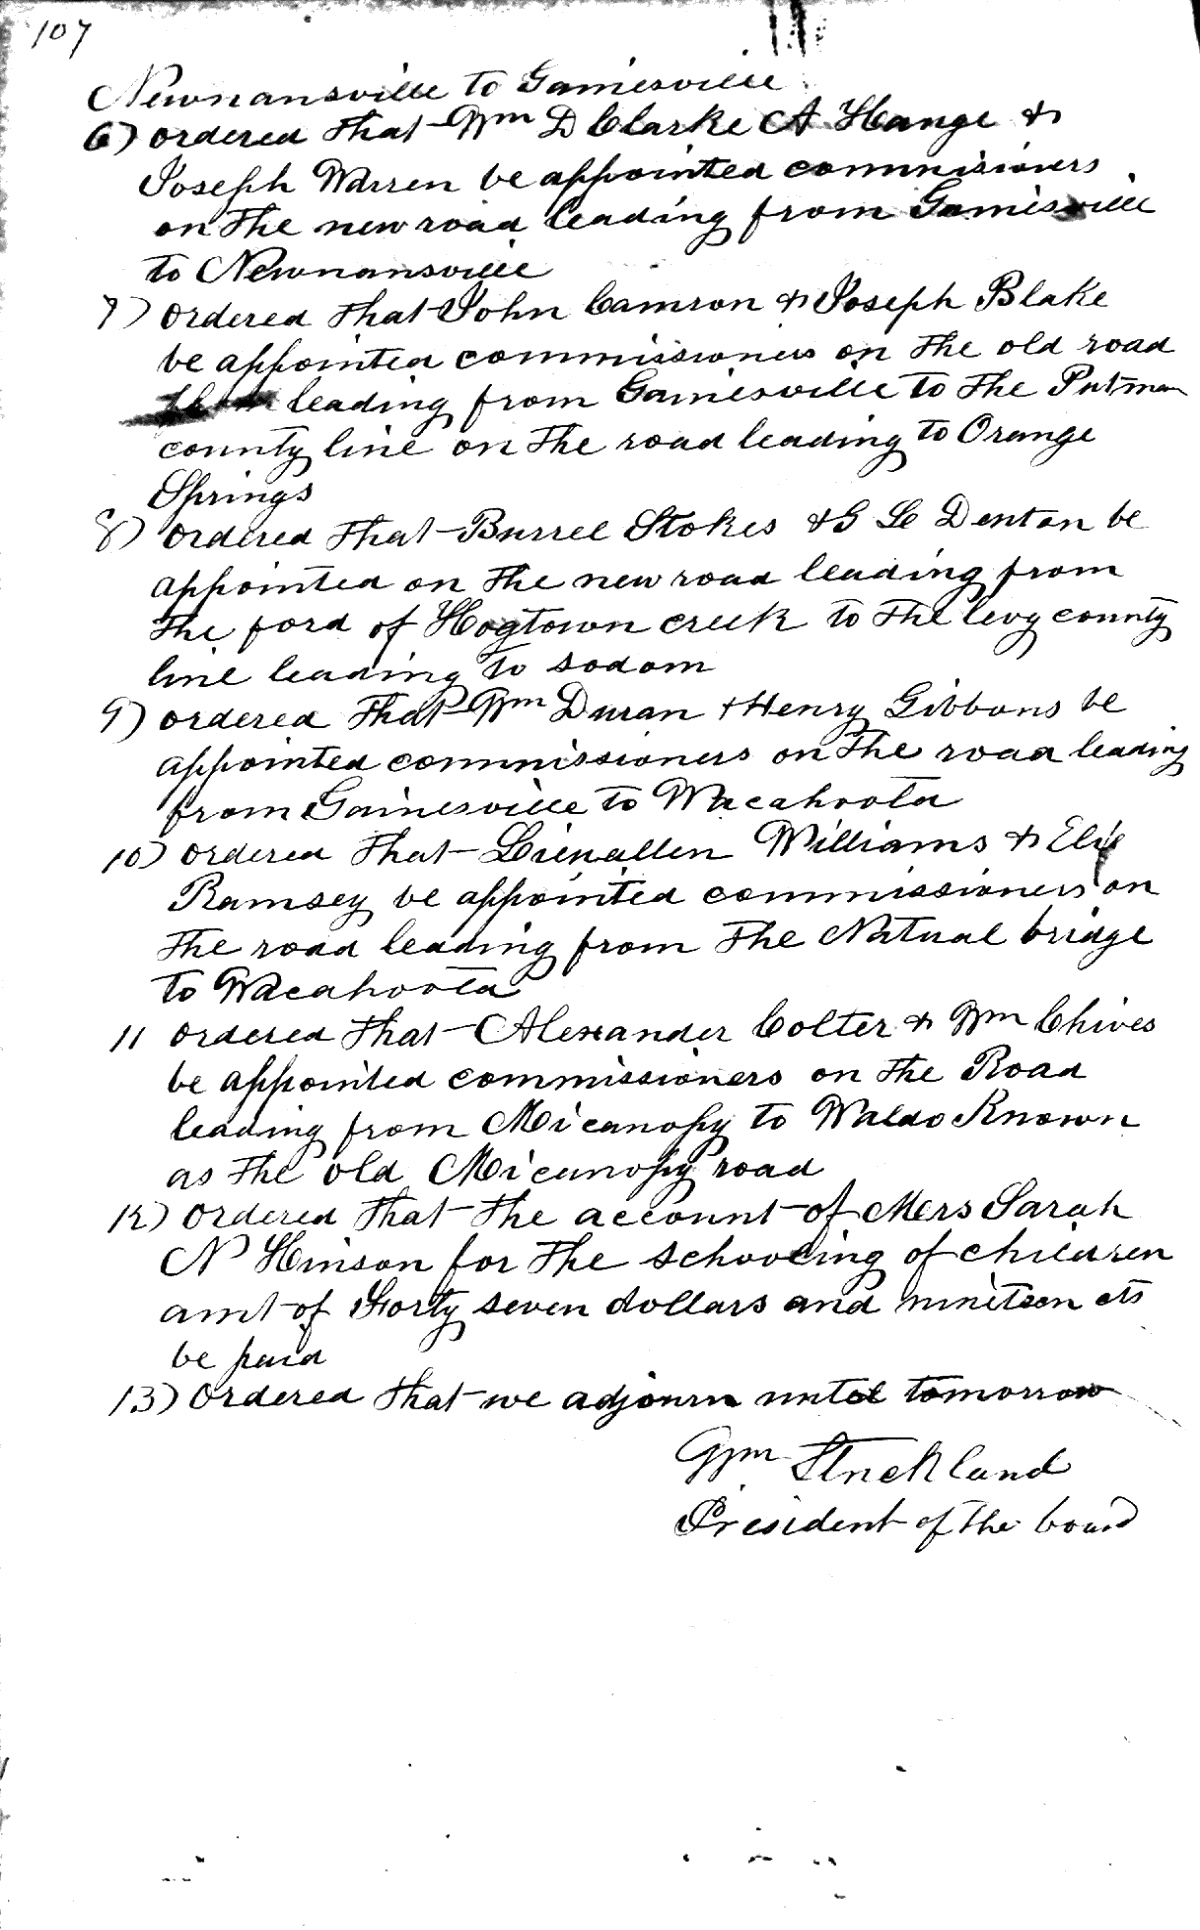 107
Newnansville to Gainesville
6) ordered that Wm D Clarke A Hange &
Joseph Warren be appointed commissioners
on the new road leading from Gainesville
to Newnansville
7) ordered that John Camron & Joseph Blake
be appointed commissioners on the old road
leading from Gainesville to the Putman
county line on the road leading to Orange
Springs
8) ordered that Burrel Stokes & G Denton be
appointed on the new road leading from
the ford of Hogtown creek to the levy county
line leading to sodom
9) ordered that Wm Duran & Henry Gibbons be
appointed commissioners on the road leading
from Gainesville to Wacahoota
10) ordered that Williams &
Ramsey be appointed commissioners on
the road leading from the Natual bridge
to Wacahoota
11 ordered that Alexander Colter & Wm Chives
be appointed commissioners on the Road
leading from Micanopy to Waldo Known
as the old Micanopy road
12) ordered that the account of Mers Sarah
N Hinson for the schooling of children
amt of Forty seven dollars and nineteen cts
be paid
13) ordered that we adjourn until tomorrow
Wm Strickland
President of the board